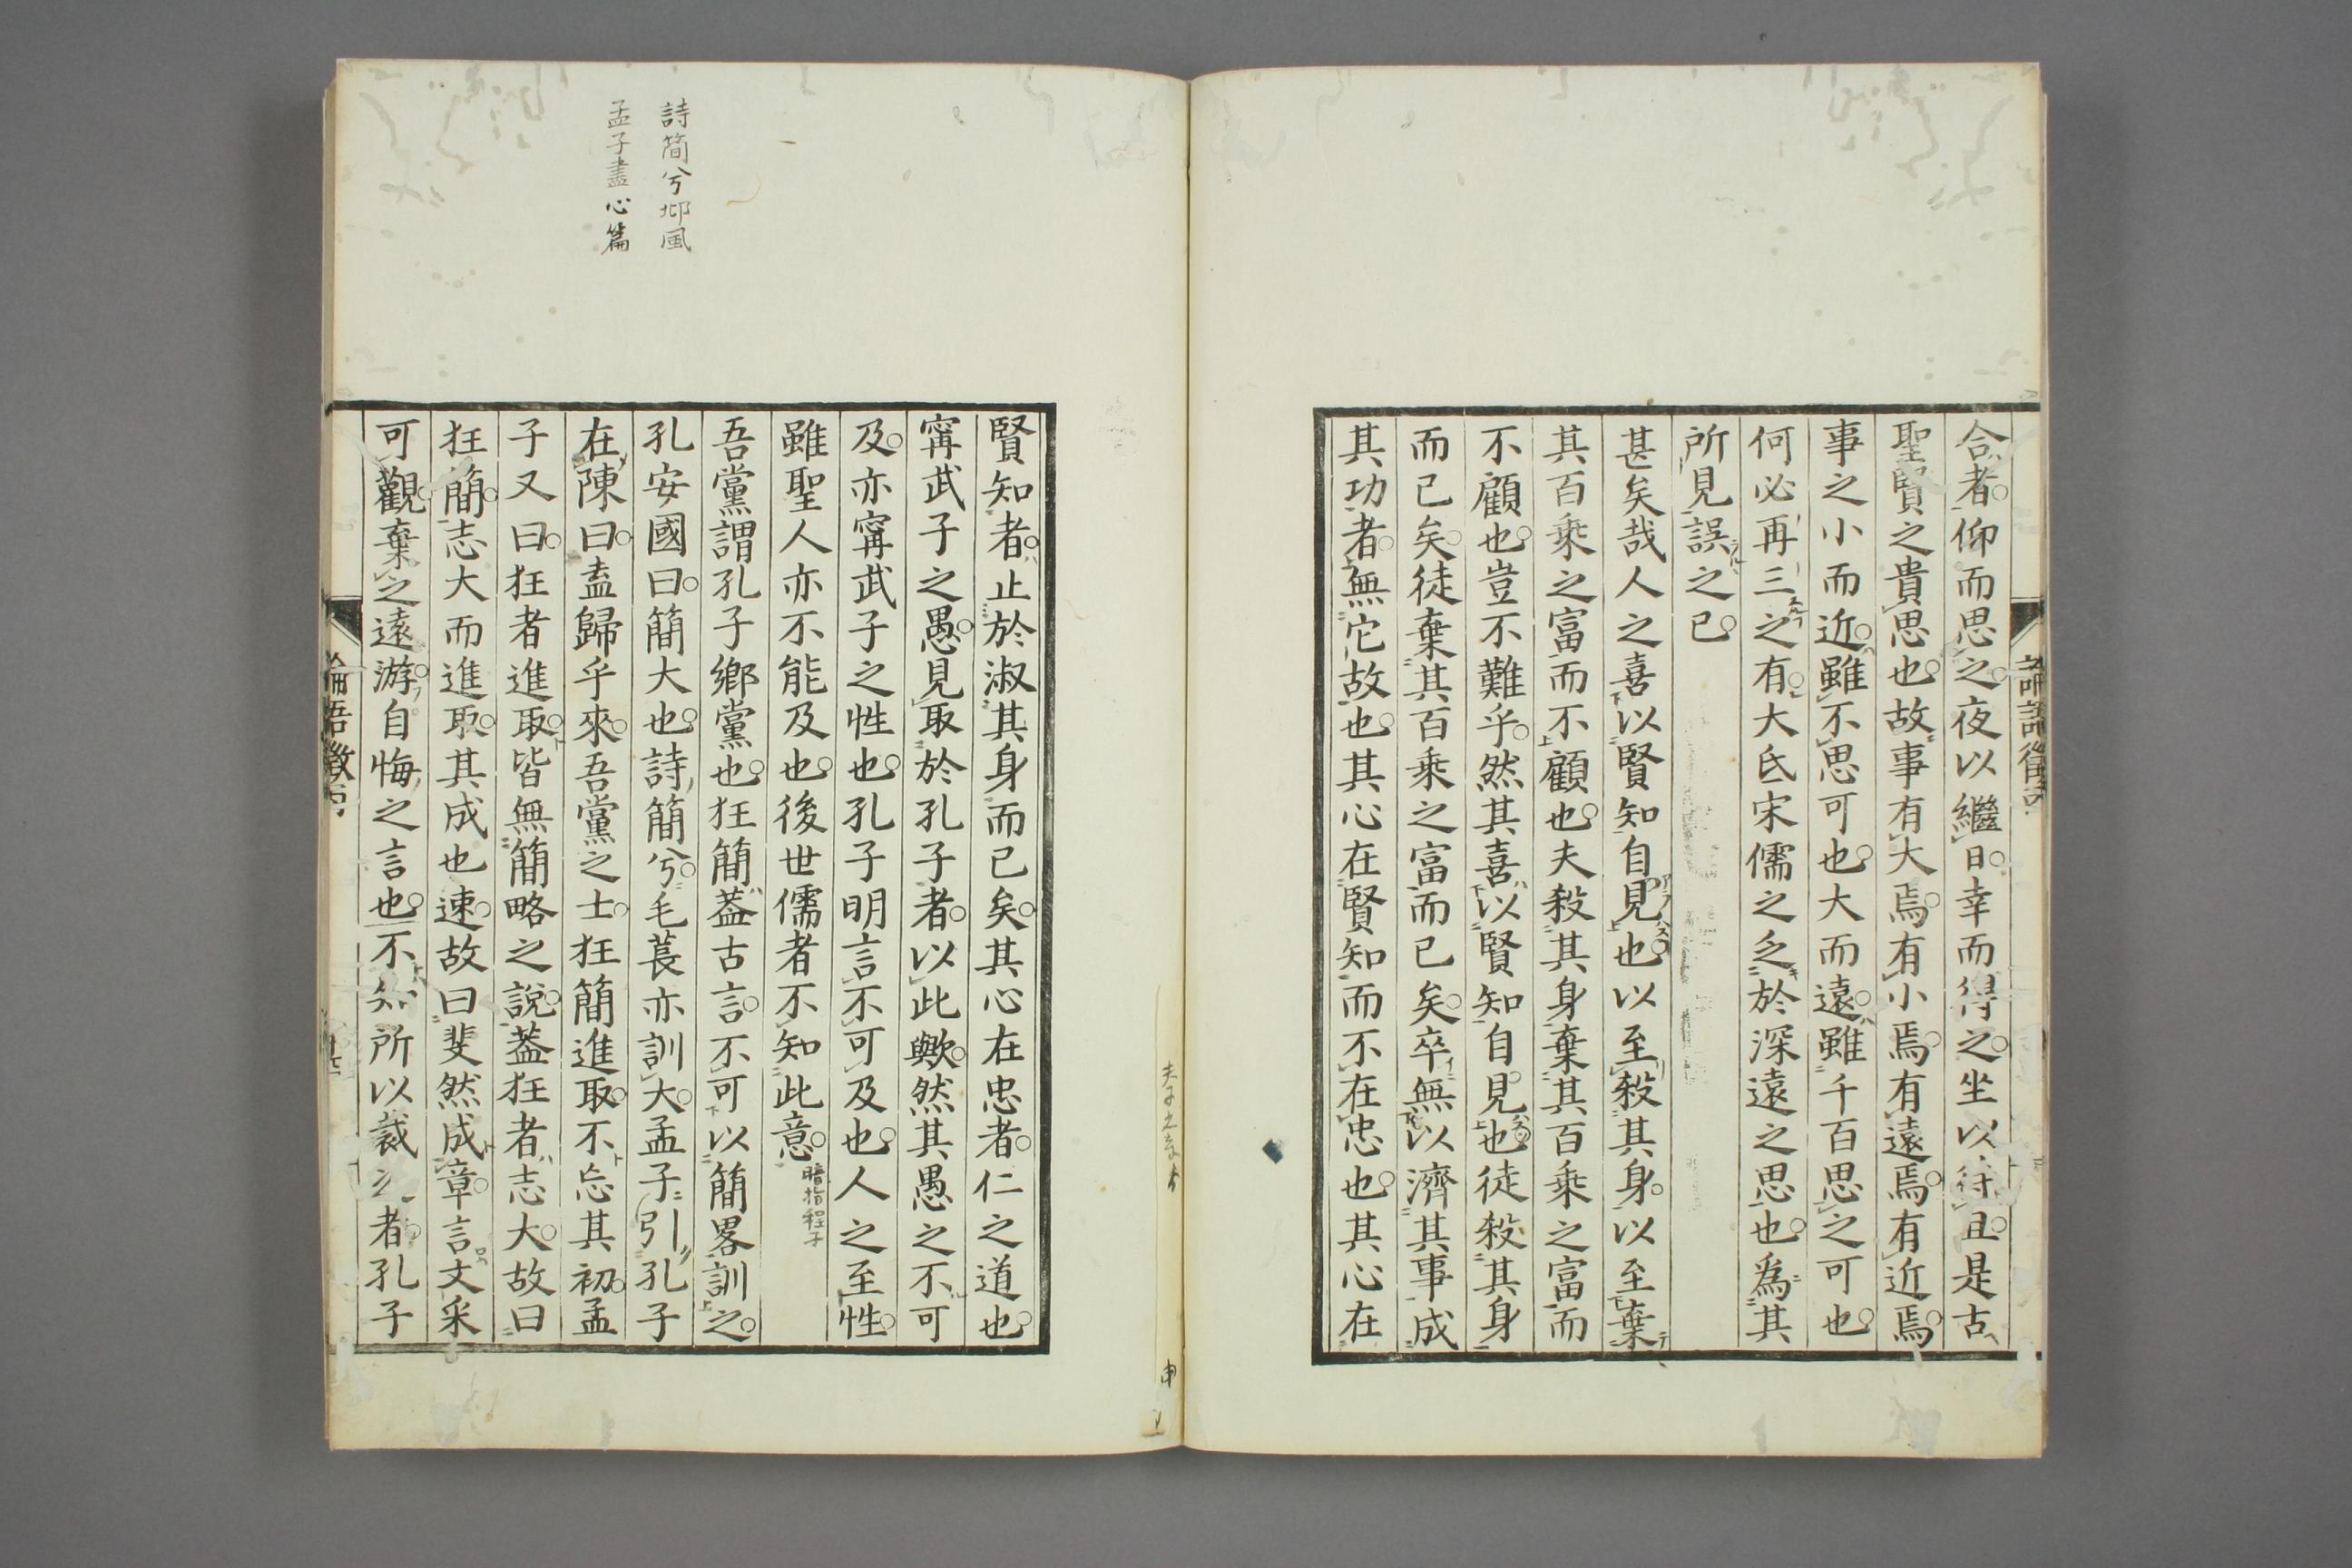 合者仰而思之夜以繼日幸而得之坐以待旦是古
聖賢之貴思也故事有大焉有小焉有遠焉有近焉
事之小而近雖不思可也大而遠雖千百思之可也
何必再三之有大氐宋儒之乏於深遠之思也爲其
所見誤之已
甚矣哉人之喜以賢知自見也以至殺其身以至棄
其百乘之富而不顧也夫殺其身棄其百乘之富而
不顧也豈不難乎然其喜以賢知自見也徒殺其身
而已矣徒棄其百乘之富而已矣卒無以濟其事成
其功者無它故也其心在賢知而不在忠也其心在
賢知者止於淑其身而已矣其心在忠者仁之道也
甯武子之愚見取於孔子者以此歟然其愚之不可
及亦甯武子之性也孔子明言不可及也人之至性
雖聖人亦不能及也後世儒者不知此意
暗指程子
吾黨謂孔子鄉黨也狂簡葢古言不可以簡畧訓之
孔安國曰簡大也詩簡兮毛萇亦訓大孟子引孔子
在陳曰盍歸乎來吾黨之士狂簡進取不忘其初孟
子又曰狂者進取皆無簡略之說葢狂者志大故曰
狂簡志大而進取其成也速故曰斐然成章言文采
可觀棄之遠游自悔之言也不知所以裁之者孔子
詩簡兮邶風
孟子盡心篇
論語徵